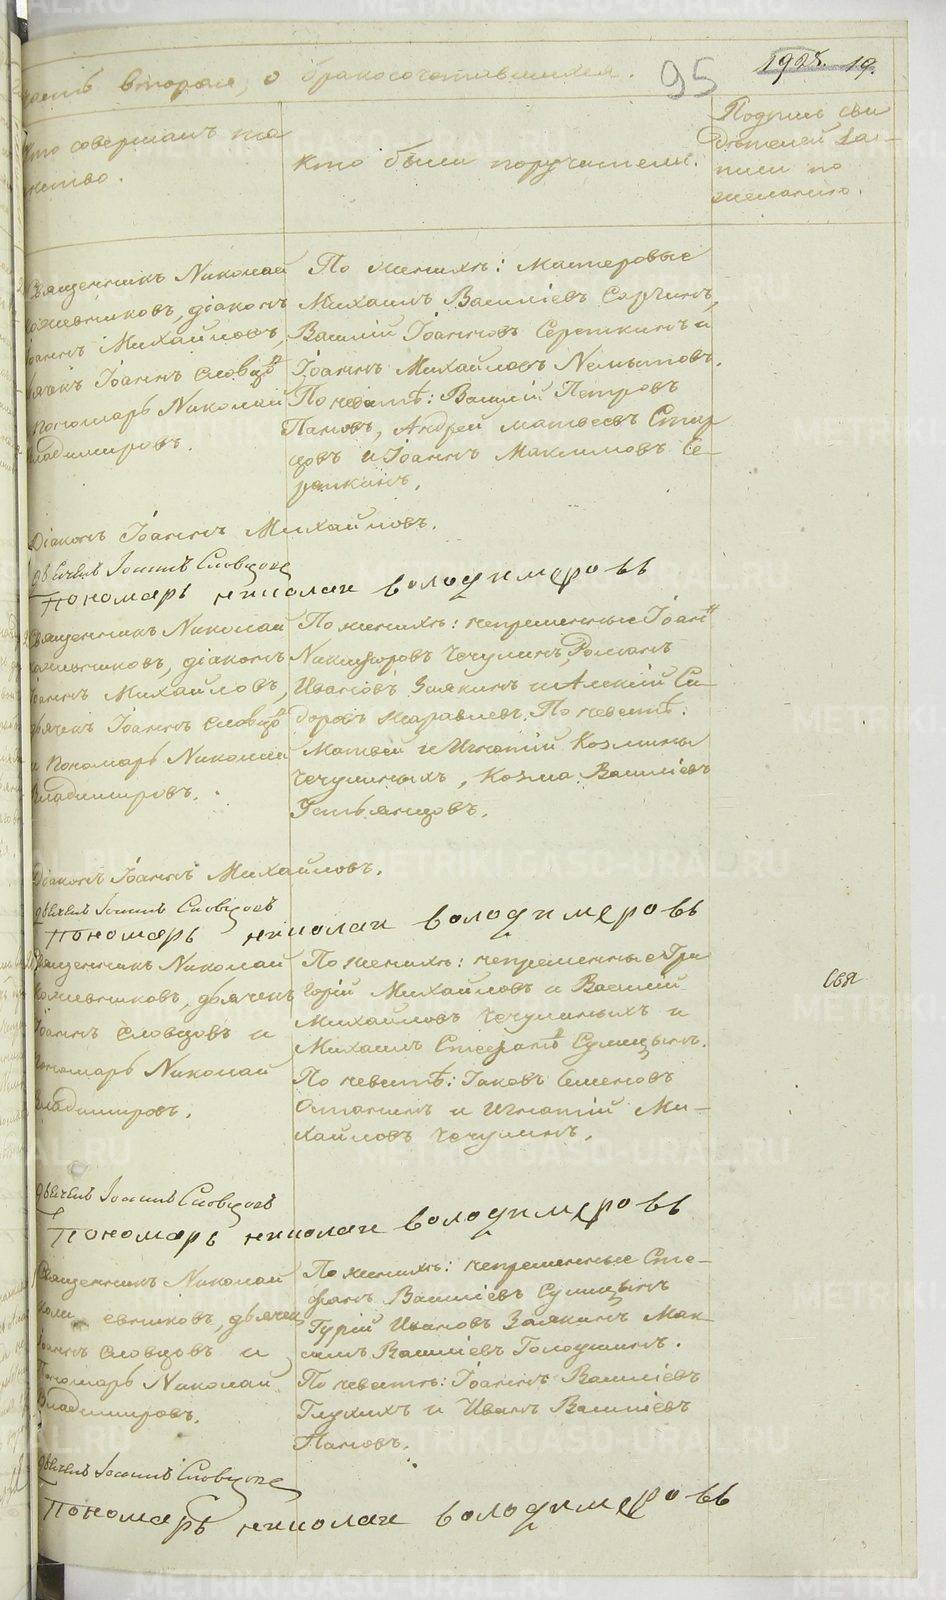 часть вторая, о бракосочетавшихся.
95
19.
Кто совершалъ та
инство.
Кто были поручители.
Подпись сви
дѣтелей за-
писи по
желанію.
Священникъ Николай
Кожевниковъ, діаконъ
Іоаннъ Михайловъ,
дьячекъ Іоаннъ Словцовъ
и пономарь Николай
Владимировъ.
По женихѣ: мастеровые
Михаилъ Васильевъ
Василій Іоанновъ Сереткинъ и
Іоаннъ Михайловъ
По невѣстѣ: Василій Петровъ
Пановъ, Андрей Матвеевъ Стар
цовъ и Іоаннъ Максимовъ Се-
реткинъ.
Діаконъ Іоаннъ Михайловъ.
Дьячекъ Іоаннъ Словцовъ
Пономарь николаи володимеровъ
Священникъ Николай
Кожевниковъ, діаконъ
Іоаннъ Михайловъ,
дьячекъ Іоаннъ Словцовъ
и пономарь Николай
Владимировъ.
По женихѣ: непременные Іоаннъ
Никифоровъ Чечулинъ, Романъ
Ивановъ Заякинъ и Алексій Си-
доровъ Журавлевъ. По невѣстѣ:
Матвей и Игнатій Козмины
Чечулиныхъ, Козма Васильевъ
Устьянцовъ.
Діаконъ Іоаннъ Михайловъ.
Дьячекъ Іоаннъ Словцовъ
Пономарь николаи володимеровъ
Священникъ Николай
Кожевниковъ, дьячекъ
Іоаннъ Словцовъ и
пономарь Николай
Владимировъ.
По женихѣ: непременные Гри
горій Михайловъ и Василий
Михайловъ Чечулиныхъ и
Михаилъ Стефановъ Сулицынъ.
По невѣстѣ: Іаковъ Семеновъ
Останинъ и Игнатій Ми-
хайловъ Чечулинъ.
Дьячекъ Іоаннъ Словцовъ
Пономарь николаи володимеровъ
Священникъ Николай
Кожевниковъ, дьячекъ
Іоаннъ Словцовъ и
Пономарь Николай
Владимировъ.
По женихѣ: непременные Сте-
фанъ Васильевъ Сулицынъ
Гурій Ивановъ Заякинъ Мак-
симъ Васильевъ
По невѣстѣ: Іоаннъ Васильевъ
Глухихъ и Иванъ Васильевъ
Пановъ.
Дьячекъ Іоаннъ Словцовъ
Пономарь николаи володимеровъ
METRIKI.GASO-URAL.RU